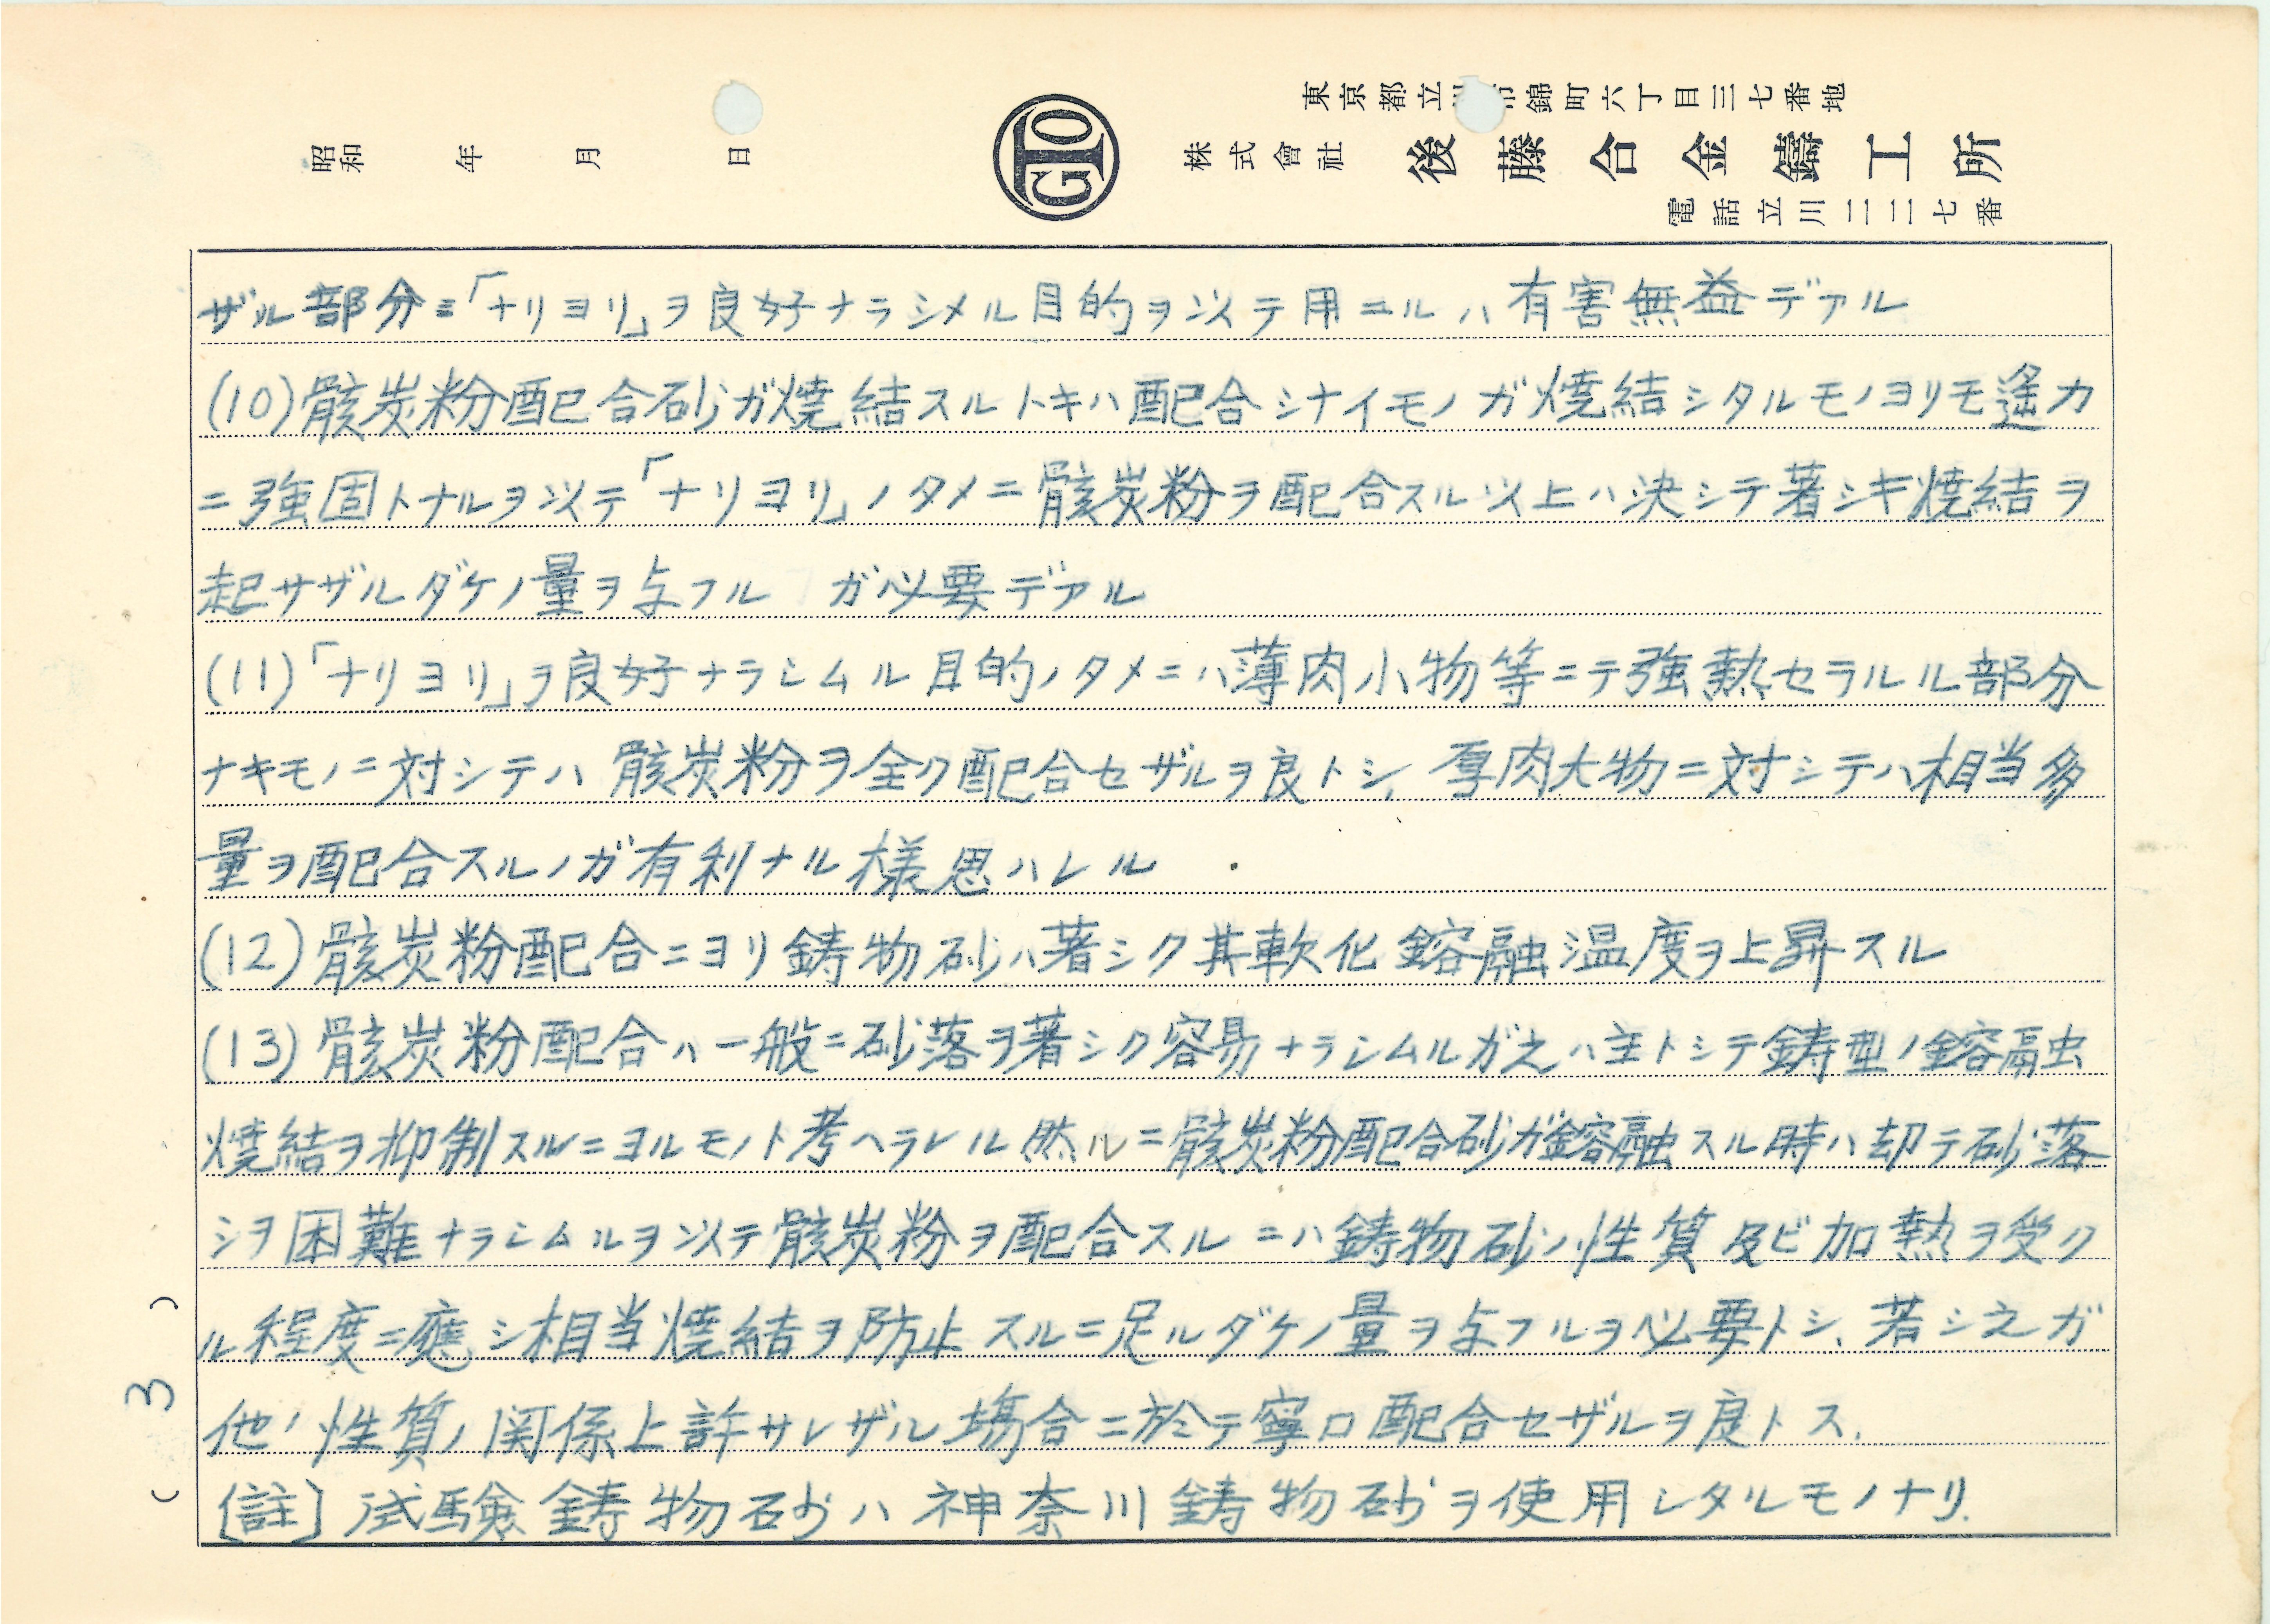 昭和　年　月　日
GTO
東京都立川市錦町六丁目三七番地
株式會社 後藤合金鑄工所
電話立川二二七番
ザル部分ニ「ナリヨリ」ヲ良好ナラシメル目的ヲ以テ用ユルハ有害無益デアル
(10)骸炭粉配合砂ガ焼結スルトキハ配合シナイモノガ焼結シタルモノヨリモ遙カ
ニ強固トナルヲ以テ「ナリヨリ」ノタメニ骸炭粉ヲ配合スル以上ハ決シテ著シキ焼結ヲ
起サザルダケノ量ヲ与フル　ガ必要デアル
(11)「ナリヨリ」ヲ良好ナラシムル目的ノタメニハ薄肉小物等ニテ強熱セラルル部分
ナキモノニ対シテハ骸炭粉ヲ全ク配合セザルヲ良トシ、厚肉大物ニ対シテハ相当多
量ヲ配合スルノガ有利ナル様思ハレル
(12)骸炭粉配合ニヨリ鋳物砂ハ著シク其軟化鎔融温度ヲ上昇スル
(13)骸炭粉配合ハ一般ニ砂落ヲ著シク容易ナラシムルガ之ハ主トシテ鋳型ノ鎔融
焼結ヲ抑制スルニヨルモノト考ヘラレル然ルニ骸炭粉配合砂ガ鎔融スル時ハ却テ砂落
シヲ困難ナラシムルヲ以テ骸炭粉ヲ配合スルニハ鋳物砂ノ性質及ビ加熱ヲ受ク
ル程度ニ應シ相当焼結ヲ防止スルニ足ルダケノ量ヲ与フルヲ必要トシ、若シ之ガ
他ノ性質ノ関係上許サレザル場合ニ於テ寧ロ配合セザルヲ良トス.
〔註〕試験鋳物砂ハ神奈川鋳物砂ヲ使用シタルモノナリ.
(3)